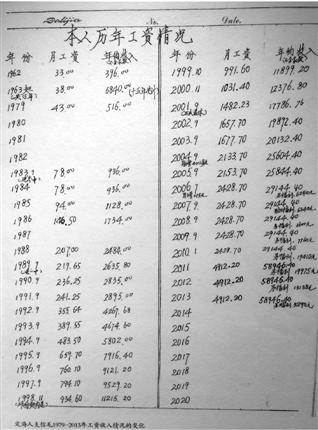 No. Date.
本人历年工资情况
年份 月工资 年均收入
1962 33.00 396.00
1963 38.00 6840.00
1979 43.00 516.00
1980
1981
1982
1983.9 78.00 936.00
1984 78.00 936.00
1985 94.00 1128.00
1986 1734.00
1987
1988 207.00 2484.00
1989.7 219.65 2635.80
1990.9 236.25 2835.00
1991.9 241.25 2895.00
1992.9 355.64 4267.68
1993.9 389.55 4674.60
1994.9 483.50 5802.00
1995.9 659.70 7916.40
1996.9 760.10 9121.20
1997.9 794.10 9529.20
1998.11 934.60 11215.20
年份 月工资 年均收入
1999.10 991.60 11899.20
2000.11 1031.40 12376.80
2001.9 1482.23 17786.76
2002.9 1657.70 19892.40
2003.9 1677.70 20132.40
2004.9 2133.70 25604.40
2005.9 2153.70 25844.40
2006.7 2428.70 29144.40
2007.9 2428.70 29144.40
2008.9 2428.70 29144.40
2009.9 2428.70 29144.40
2010.1 2428.70 29144.40
2011 4912.20 58946.40
2012 4912.20 58946.40
2013 4912.20 58946.40
2014
2015
2016
2017
2018
2019
2020
定海人支信龙1979—2013年工资收入情况的变化